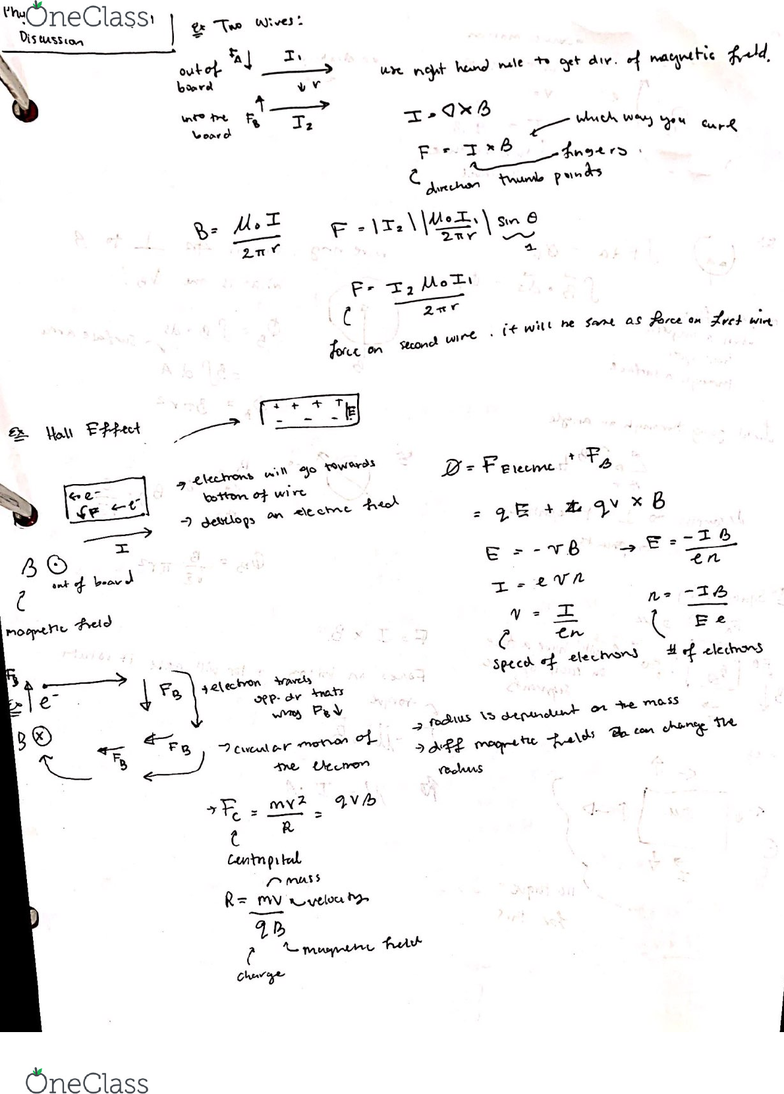 Phy
OneClass
Discussion
Ex Two Wires:
out of board
F_A ↓ I₁
↓ r
into the board
F_B ↑ I₂
use right hand rule to get dir. of magnetic field.
I = ∇ × B
F = I × B
which way you curl fingers.
direction thumb points
B = μ₀I / 2πr
F = |I₂| |μ₀I₁ / 2πr| sin θ
1
F = I₂μ₀I₁ / 2πr
force on second wire. it will be same as force on first wire
Ex Hall Effect
+ + + +
- - - E
← e⁻
↓F ← e⁻
I
→ electrons will go towards bottom of wire
→ develops an electric field
B ⊙ out of board
magnetic field
0 = F Electric + F_B
= qE + qv × B
E = -vB → E = -IB / en
I = evn
v = I / en
n = -IB / Ee
speed of electrons
# of electrons
F_B
Ex e⁻
F_B
B ⊗
F_B
F_B
→ electron travels opp. dir thats why F_B ↓
→ circular motion of the electron
→ radius is dependent on the mass
→ diff magnetic fields can change the radius
→ F_c = mv² / R = qvB
centripital
mass
R = mv / qB
velocity
magnetic field
charge
OneClass